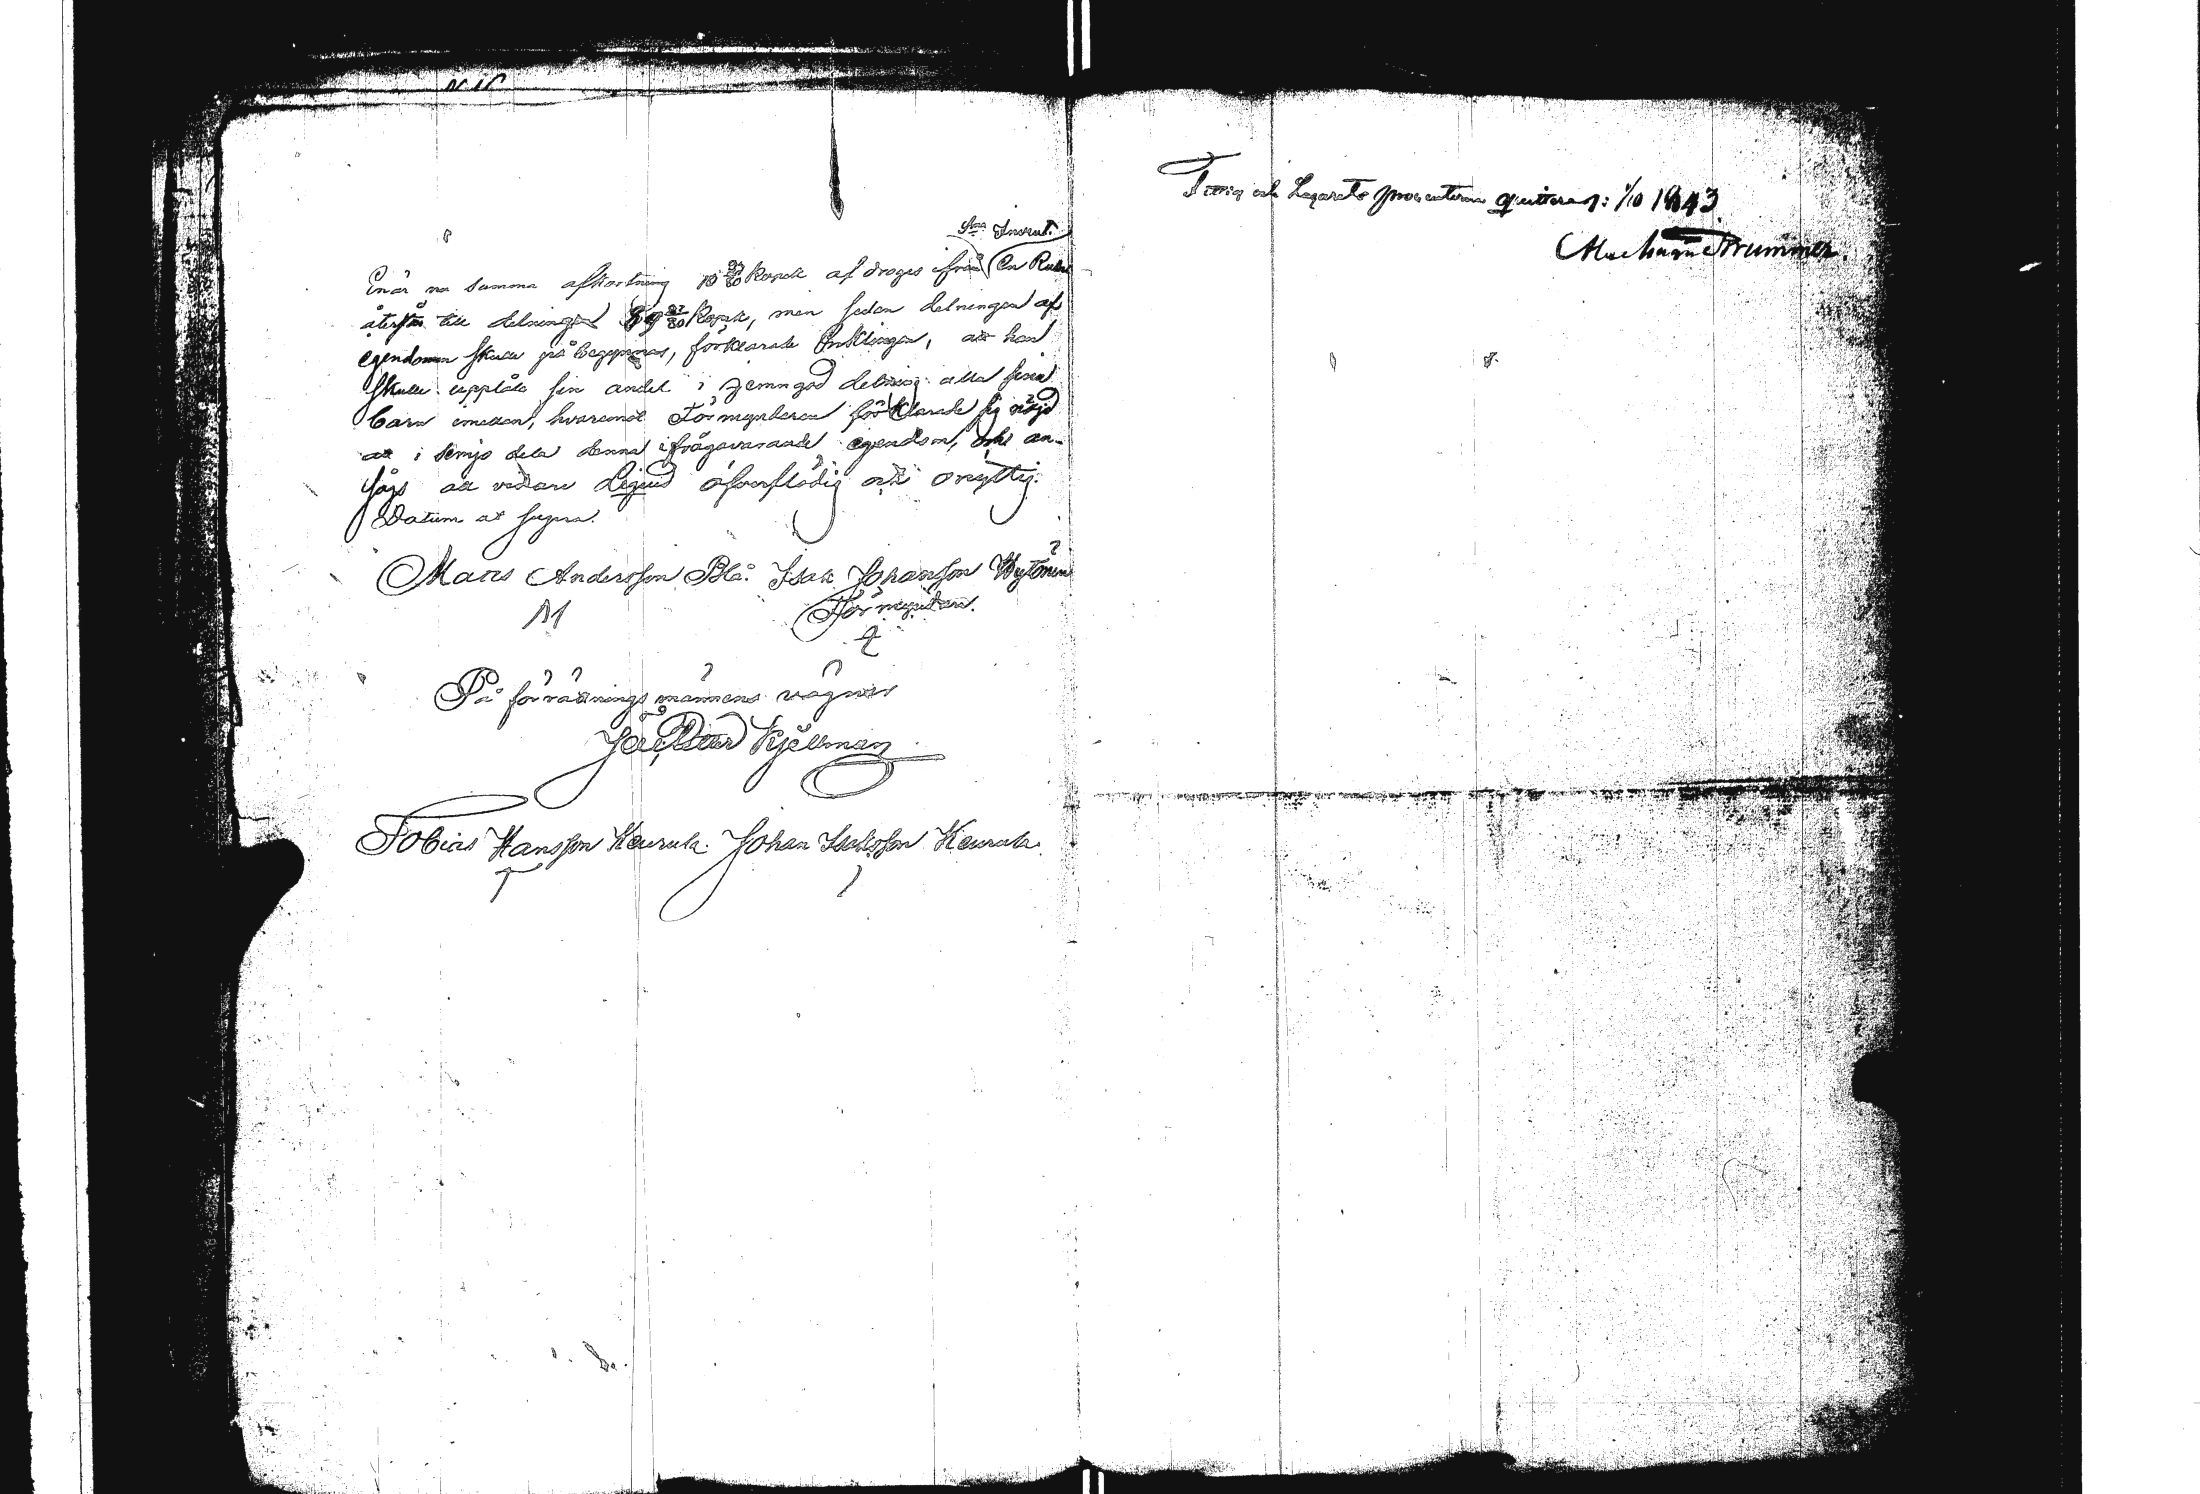 Enär nu samma afkortning 10 kopek af droges ifrån En Rubel
återstår till delningen 89 kopek, men sedan delningen af
egendomen skulle på begynnas, förklarade Enklingen, att han
skulle uppläta sin andel i jemngod delning alla sina
barn emellan, hvaremot Förmyndaren förklarade sig nöjd
att i semjo dela denna ifrågavarande egendom, och an-
sågs all vidare Liqvid öfverflödig och onyttig.
Datum at supra.
Mats Andersson Blå. Isak Johansson
M Förmyndare.
På förrättnings männens vägnar
Petter Kjellman
Tobias Hansson Keurula. Johan Isaksson Keurula.
Fattig och Lazaretts procenterne quitteras: 1/10 1843.
Brummer.